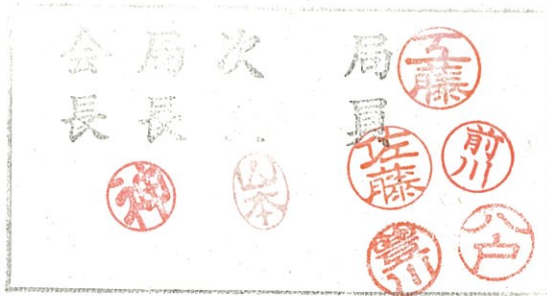 会長
局長
次
局員
神
山本
工藤
佐藤
前川
豊川
八戸